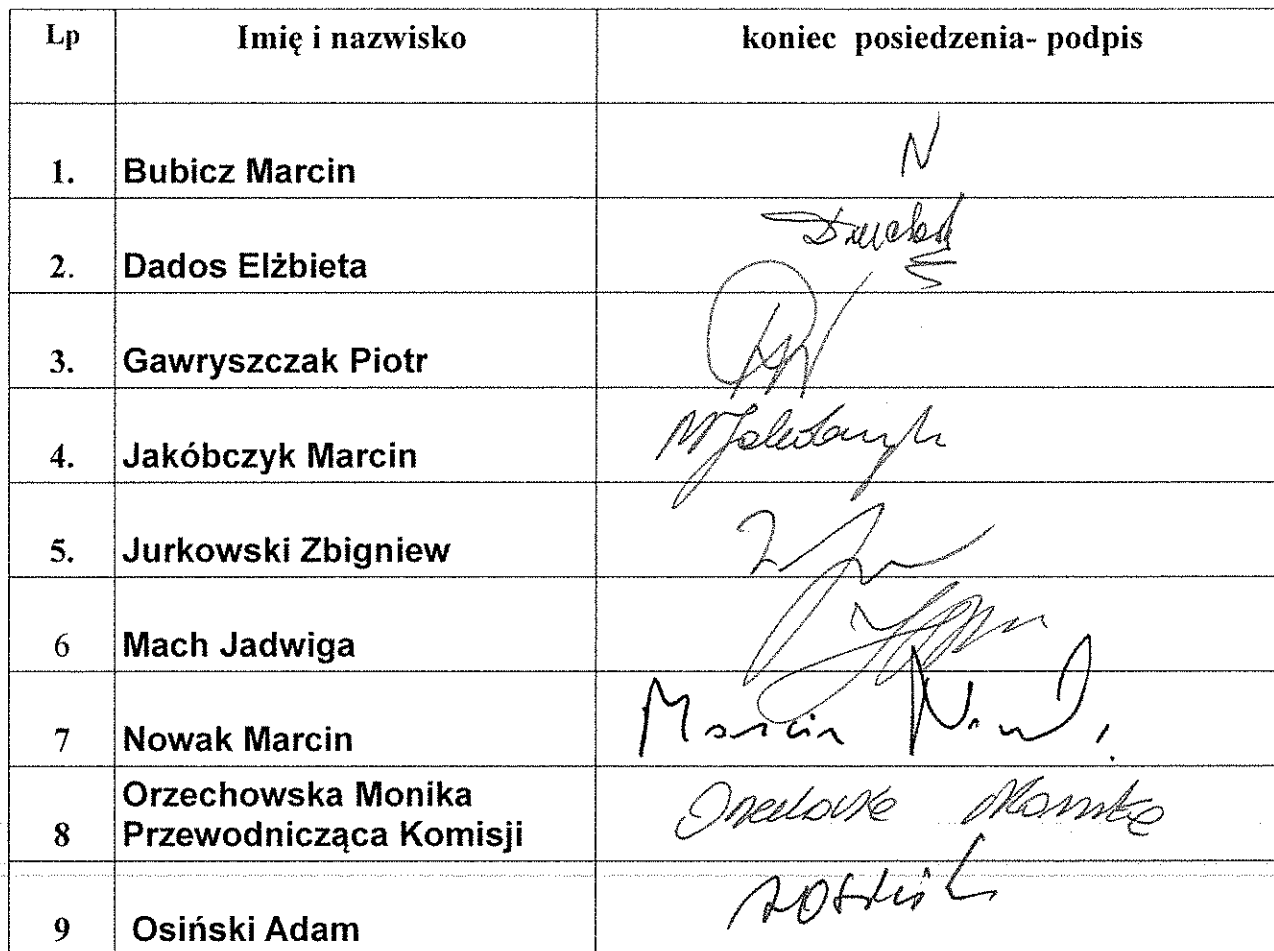 Lp Imię i nazwisko koniec posiedzenia- podpis
1. Bubicz Marcin N
2. Dados Elżbieta
3. Gawryszczak Piotr
4. Jakóbczyk Marcin
5. Jurkowski Zbigniew
6 Mach Jadwiga
7 Nowak Marcin Marcin
Orzechowska Monika
8 Przewodnicząca Komisji
9 Osiński Adam